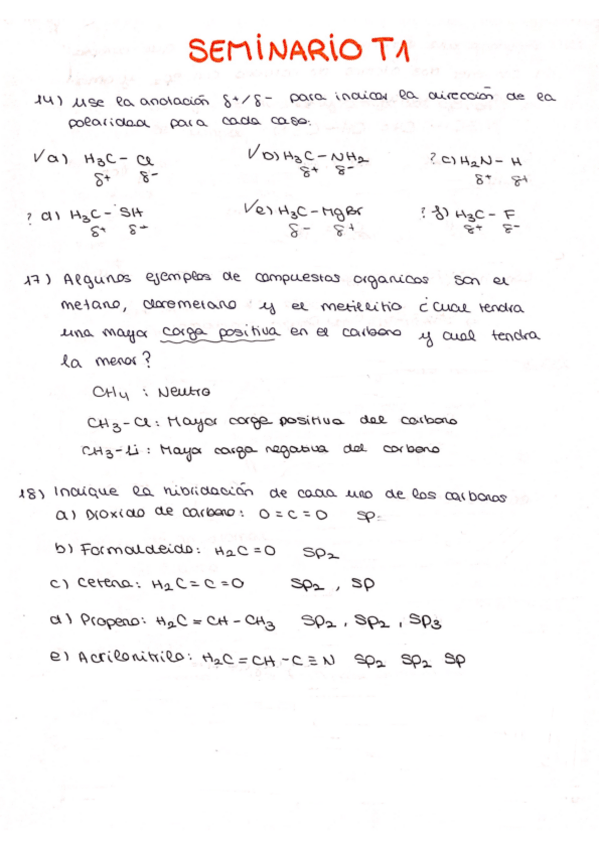 SEMINARIO T1
14) Use la anotación δ+/δ- para indicar la dirección de la
polaridad para cada caso:
√a) H₃C - Cl √b) H₃C - NH₂ ? c) H₂N - H
δ+ δ- δ+ δ- δ+ δ+
? d) H₃C - SH √e) H₃C - MgBr ? f) H₃C - F
δ+ δ- δ- δ+ δ+ δ-
17) Algunos ejemplos de compuestos organicos son el
metano, clorometano y el metillitio ¿Cual tendra
una mayor carga positiva en el carbono y cual tendra
la menor?
CH₄ : Neutro
CH₃-Cl : Mayor carga positiva del carbono
CH₃-Li : Mayor carga negativa del carbono
18) Indique la hibridación de cada uno de los carbonos
a) Dioxido de carbono: O=C=O SP
b) Formaldeido: H₂C=O SP₂
c) Cetena: H₂C=C=O SP₂, SP
d) Propeno: H₂C=CH-CH₃ SP₂, SP₂, SP₃
e) Acrilonitrilo: H₂C=CH-C≡N SP₂ SP₂ SP